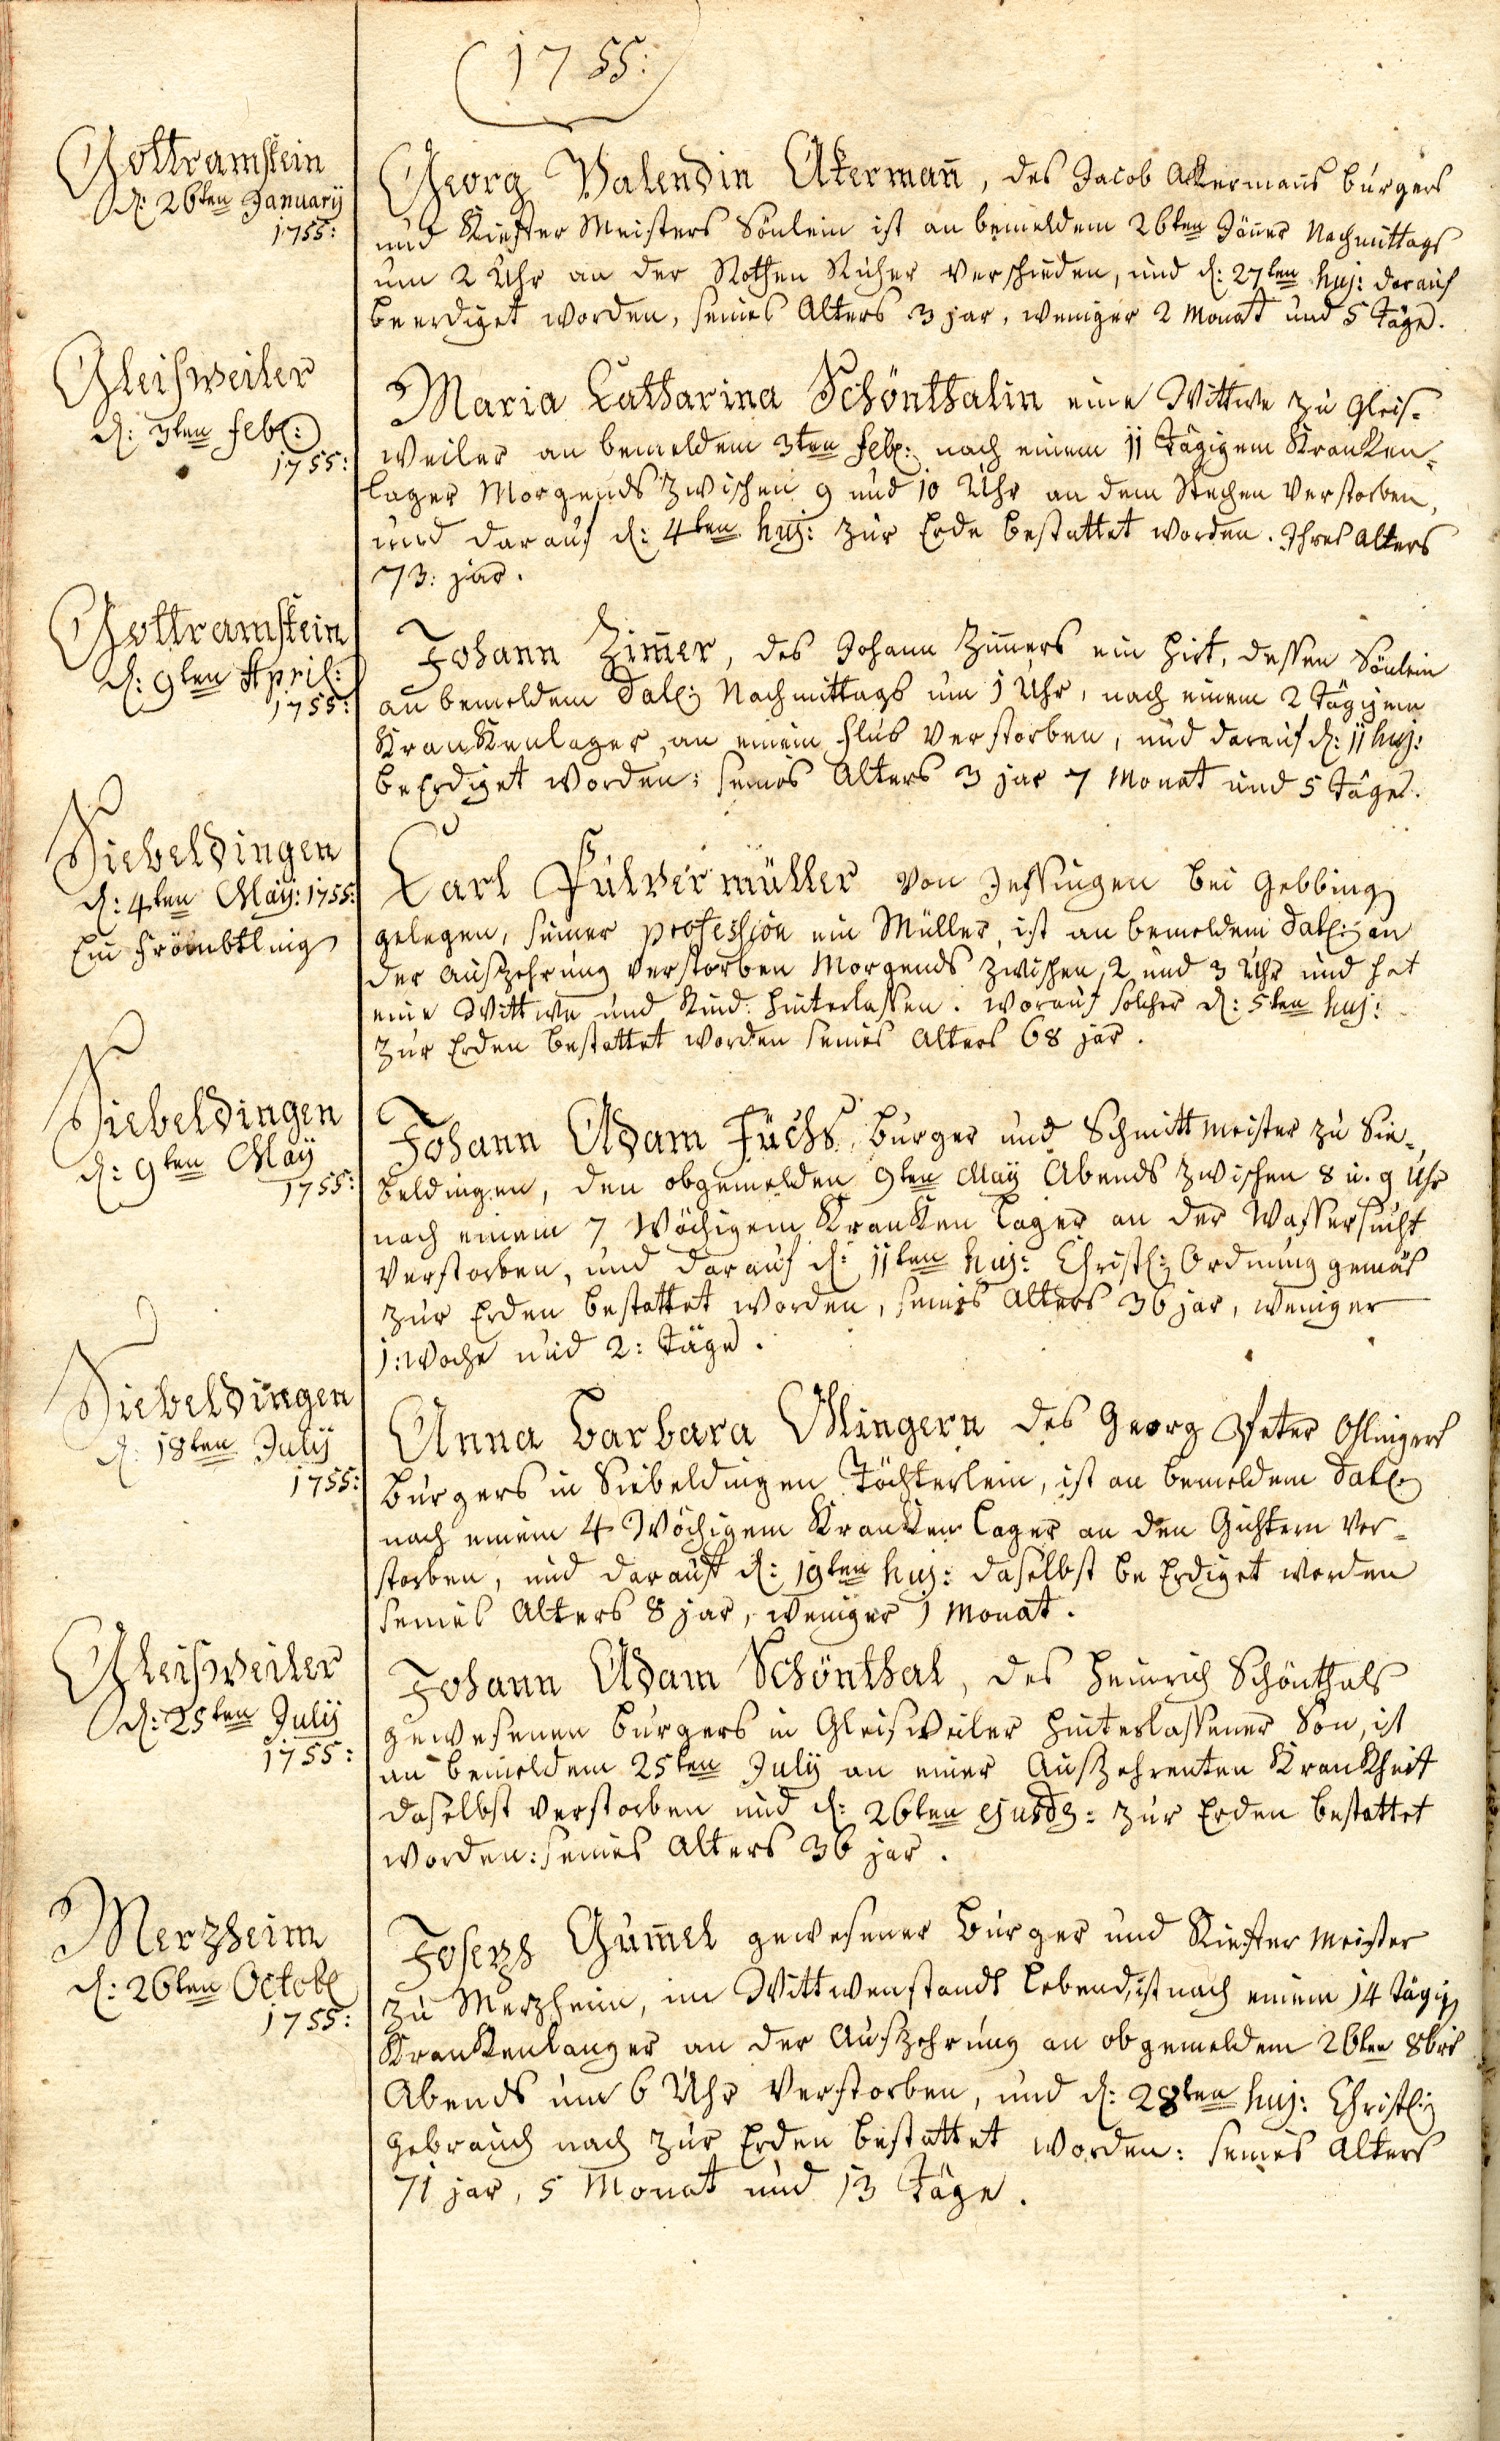 1755:
Gottramstein
d: 26ten Januarÿ
1755:
Georg Valendin Akermañ, des Jacob Ackermañs burgers
und Kieffer Meisters Sönlein ist an bemeldem 26ten Jäñer Nachmittags
um 2 Uhr an der Rothen Ruher verschieden, und d: 27ten huj: darauf
beerdiget worden, seines Alters 3 jar, weniger 2 Monat und 5 Täge.
Gleisweiler
d: 3ten febr:
1755:
Maria Catharina Schönthalin eine Wittwe zu Gleis-
weiler an bemeldem 3ten febr: nach einem 11 Tägigem Kranken-
lager Morgends zwischen 9 und 10 Uhr an dem Stechen verstorben,
und darauf d: 4ten huj: zur Erde bestattet worden. Ihres Alters
73: jar.
Gottramstein
d: 9ten April:
1755:
Johann Zim̃er, des Johann Zim̃ers ein Hirt, dessen Sönlein
an bemeldem dato Nachmittags um 1 Uhr, nach einem 2 Tägigem
Krankenlager, an einem flus verstorben, und darauf d: 11 huj:
beErdiget worden: seines Alters 3 jar 7 Monat und 5 Täge.
Siebeldingen
d: 4ten Maÿ: 1755:
Ein Frömbtling
Carl Pulvermüller von Jessingen bei Gebbing
gelegen, seiner profession ein Müller, ist an bemeldem dato an
der Auszehrung verstorben Morgends zwischen 2 und 3 Uhr und hat
eine Wittwe und Kind: hinterlassen. worauf solcher d: 5ten huj:
zur Erden bestattet worden seines Alters 68 jar.
Siebeldingen
d: 9ten Maÿ
1755:
Johann Adam Fuchs, burger und Schmitt Meister zu Sie-
beldingen, den obgemelden 9ten Maÿ Abends zwischen 8 u. 9 Uhr
nach einem 7 Wöchigem Kranken Lager an der Wassersucht
verstorben, und darauf d: 11ten huj: Christl: Ordnung gemäs
zur Erden bestattet worden, seines Alters 36 jar, weniger
1: woche und 2: Täge.
Siebeldingen
d: 18ten Julÿ
1755:
Anna Barbara Ohlingern des Georg Peter Ohlingers
burgers in Siebeldingen Töchterlein, ist an bemeldem dato
nach einem 4 Wöchigem Kranken Lager an den Gichtern ver-
storben, und darauf d: 19ten huj: daselbst beErdiget worden
seines Alters 8 jar, weniger 1 Monat.
Gleisweiler
d: 25ten Julÿ
1755:
Johann Adam Schönthal, des Heinrich Schönthals
gewesenen burgers in Gleisweiler hinterlassener Son, ist
an bemeldem 25ten Julÿ an einer Auszehrenten Krankheit
daselbst verstorben und d: 26ten ejusd: zur Erden bestattet
worden: seines Alters 36 jar.
Merzheim
d: 26ten Octobr
1755:
Joseph Gum̃el gewesener Burger und Kieffer Meister
zu Merzheim, im Wittwenstandt Lebend, ist nach einem 14 Tägig
Krankenlanger an der Auszehrung an obgemeldem 26ten 8bris
Abends um 6 Uhr verstorben, und d: 28ten huj: Christl:
gebrauch nach zur Erden bestattet worden: seines Alters
71 jar, 5 Monat und 13 Täge.